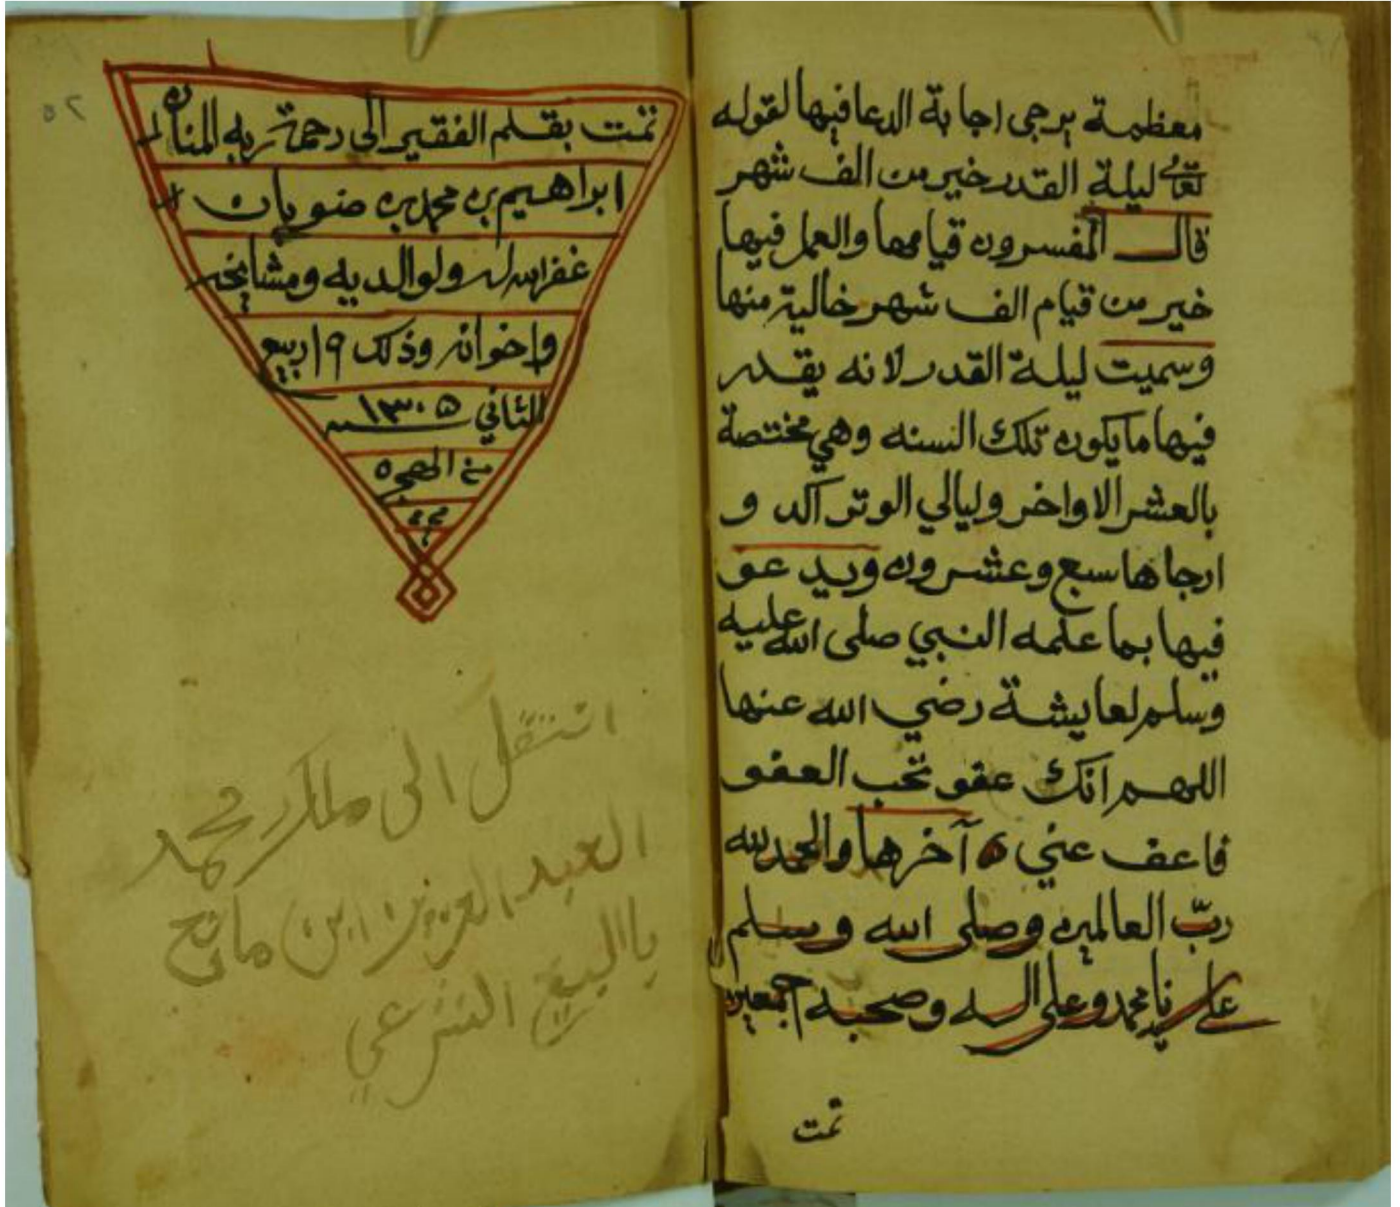 معظمة يرجى اجابة الدعا فيها لقوله
تعالى ليلة القدر خير من الف شهر
قال المفسرون قيامها والعمل فيها
خير من قيام الف شهر خالية منها
وسميت ليلة القدر لانه يقدر
فيها ما يكون تلك السنه وهي مختصة
بالعشر الاواخر وليالي الوتر آكد و
ارجاها سبع وعشرون ويدعو
فيها بما علمه النبي صلى الله عليه
وسلم لعايشة رضي الله عنها
اللهم انك عفو تحب العفو
فاعف عني ه آخرها والحمد لله
ربّ العالمين وصلى الله وسلم
على نبينا محمد وعلى اله وصحبه اجمعين
تمت
تمت بقلم الفقير الى رحمة ربه المنان
ابراهيم بن محمد بن ضويان
غفر الله له ولوالديه ومشايخه
واخوانه وذلك ١٩ ربيع
الثاني ١٣٠٥ سنه
من الهجره
انتقل الى ملك محمد
العبد العزيز ابن مانع
باالبيع الشرعي
٢٥